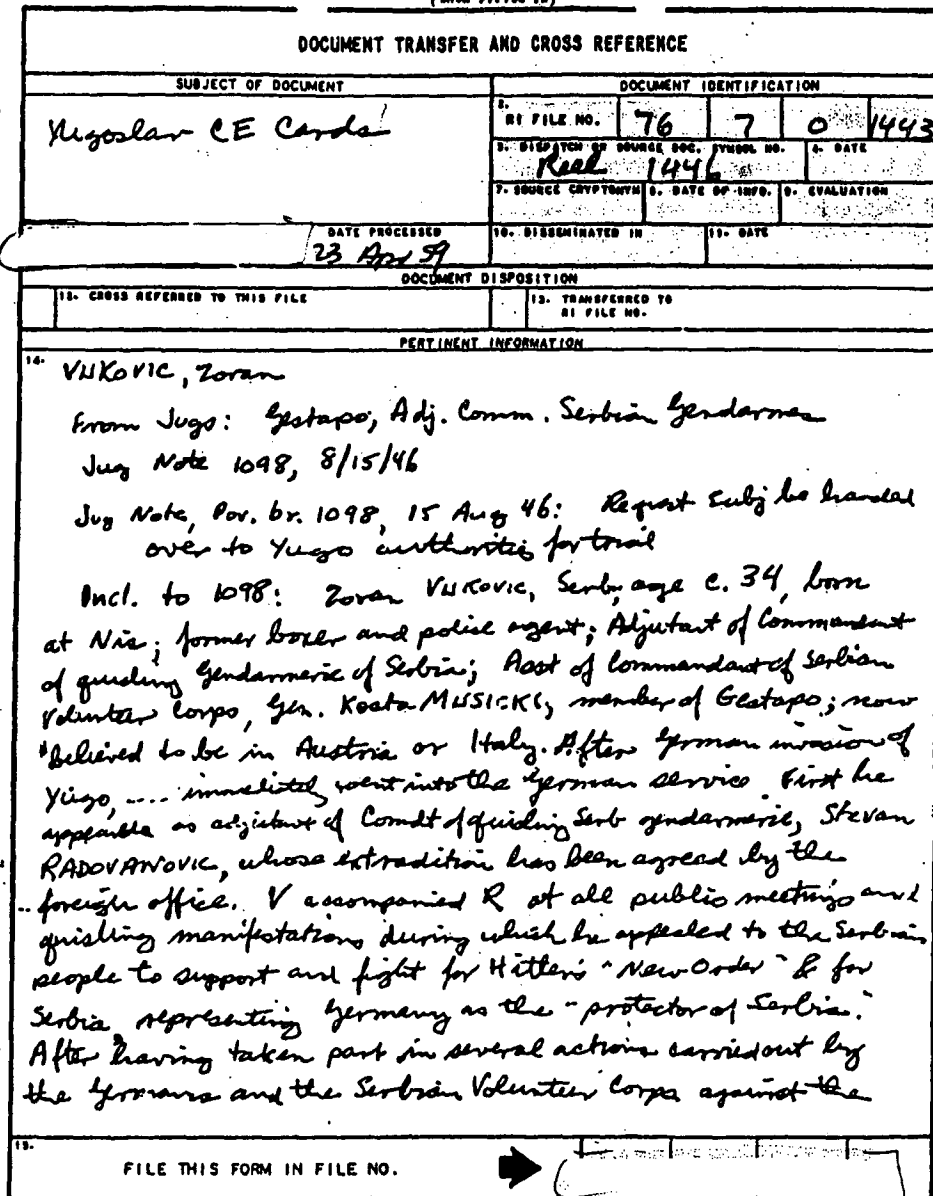 DOCUMENT TRANSFER AND CROSS REFERENCE
SUBJECT OF DOCUMENT
DOCUMENT IDENTIFICATION
Yugoslav CE Cards
2. RI FILE NO. 76 7 0 1443
3. DISPATCH OR SOURCE DOC. SYMBOL NO. 4. DATE
Reel 1446
7. SOURCE CRYPTONYM 8. DATE OF INFO. 9. EVALUATION
DATE PROCESSED
23 Apr 59
10. DISSEMINATED IN 11. DATE
DOCUMENT DISPOSITION
12. CROSS REFERRED TO THIS FILE
13. TRANSFERRED TO
RI FILE NO.
PERTINENT INFORMATION
14. VUKOVIC, Zoran
From Jugs: Gestapo, Adj. Comm. Serbian Gendarmes
Jug Note 1098, 8/15/46
Jug Note, Pov. br. 1098, 15 Aug 46: Request Subj be handed
over to Yugo authorities for trial
Incl. to 1098: Zoran VUKOVIC, Serb, age c. 34, born
at Nis; former boxer and police agent; Adjutant of Commandant
of quisling Gendarmerie of Serbia; Asst of Commandant of Serbian
Volunteer Corps, Gen. Kosta MUSICKI, member of Gestapo; now
"believed to be in Austria or Italy. After German invasion of
Yugo, .... immediately went into the German service. First he
as adjutant of Comdt of quisling Serb gendarmerie, Stevan
RADOVANOVIC, whose extradition has been agreed by the
.. foreign office. V accompanied R at all public meetings and
quisling manifestations during which he appealed to the Serbian
people to support and fight for Hitler's "New Order" & for
Serbia, representing Germany as the "protector of Serbia."
After having taken part in several actions carried out by
the Germans and the Serbian Volunteer Corps against the
15.
FILE THIS FORM IN FILE NO.